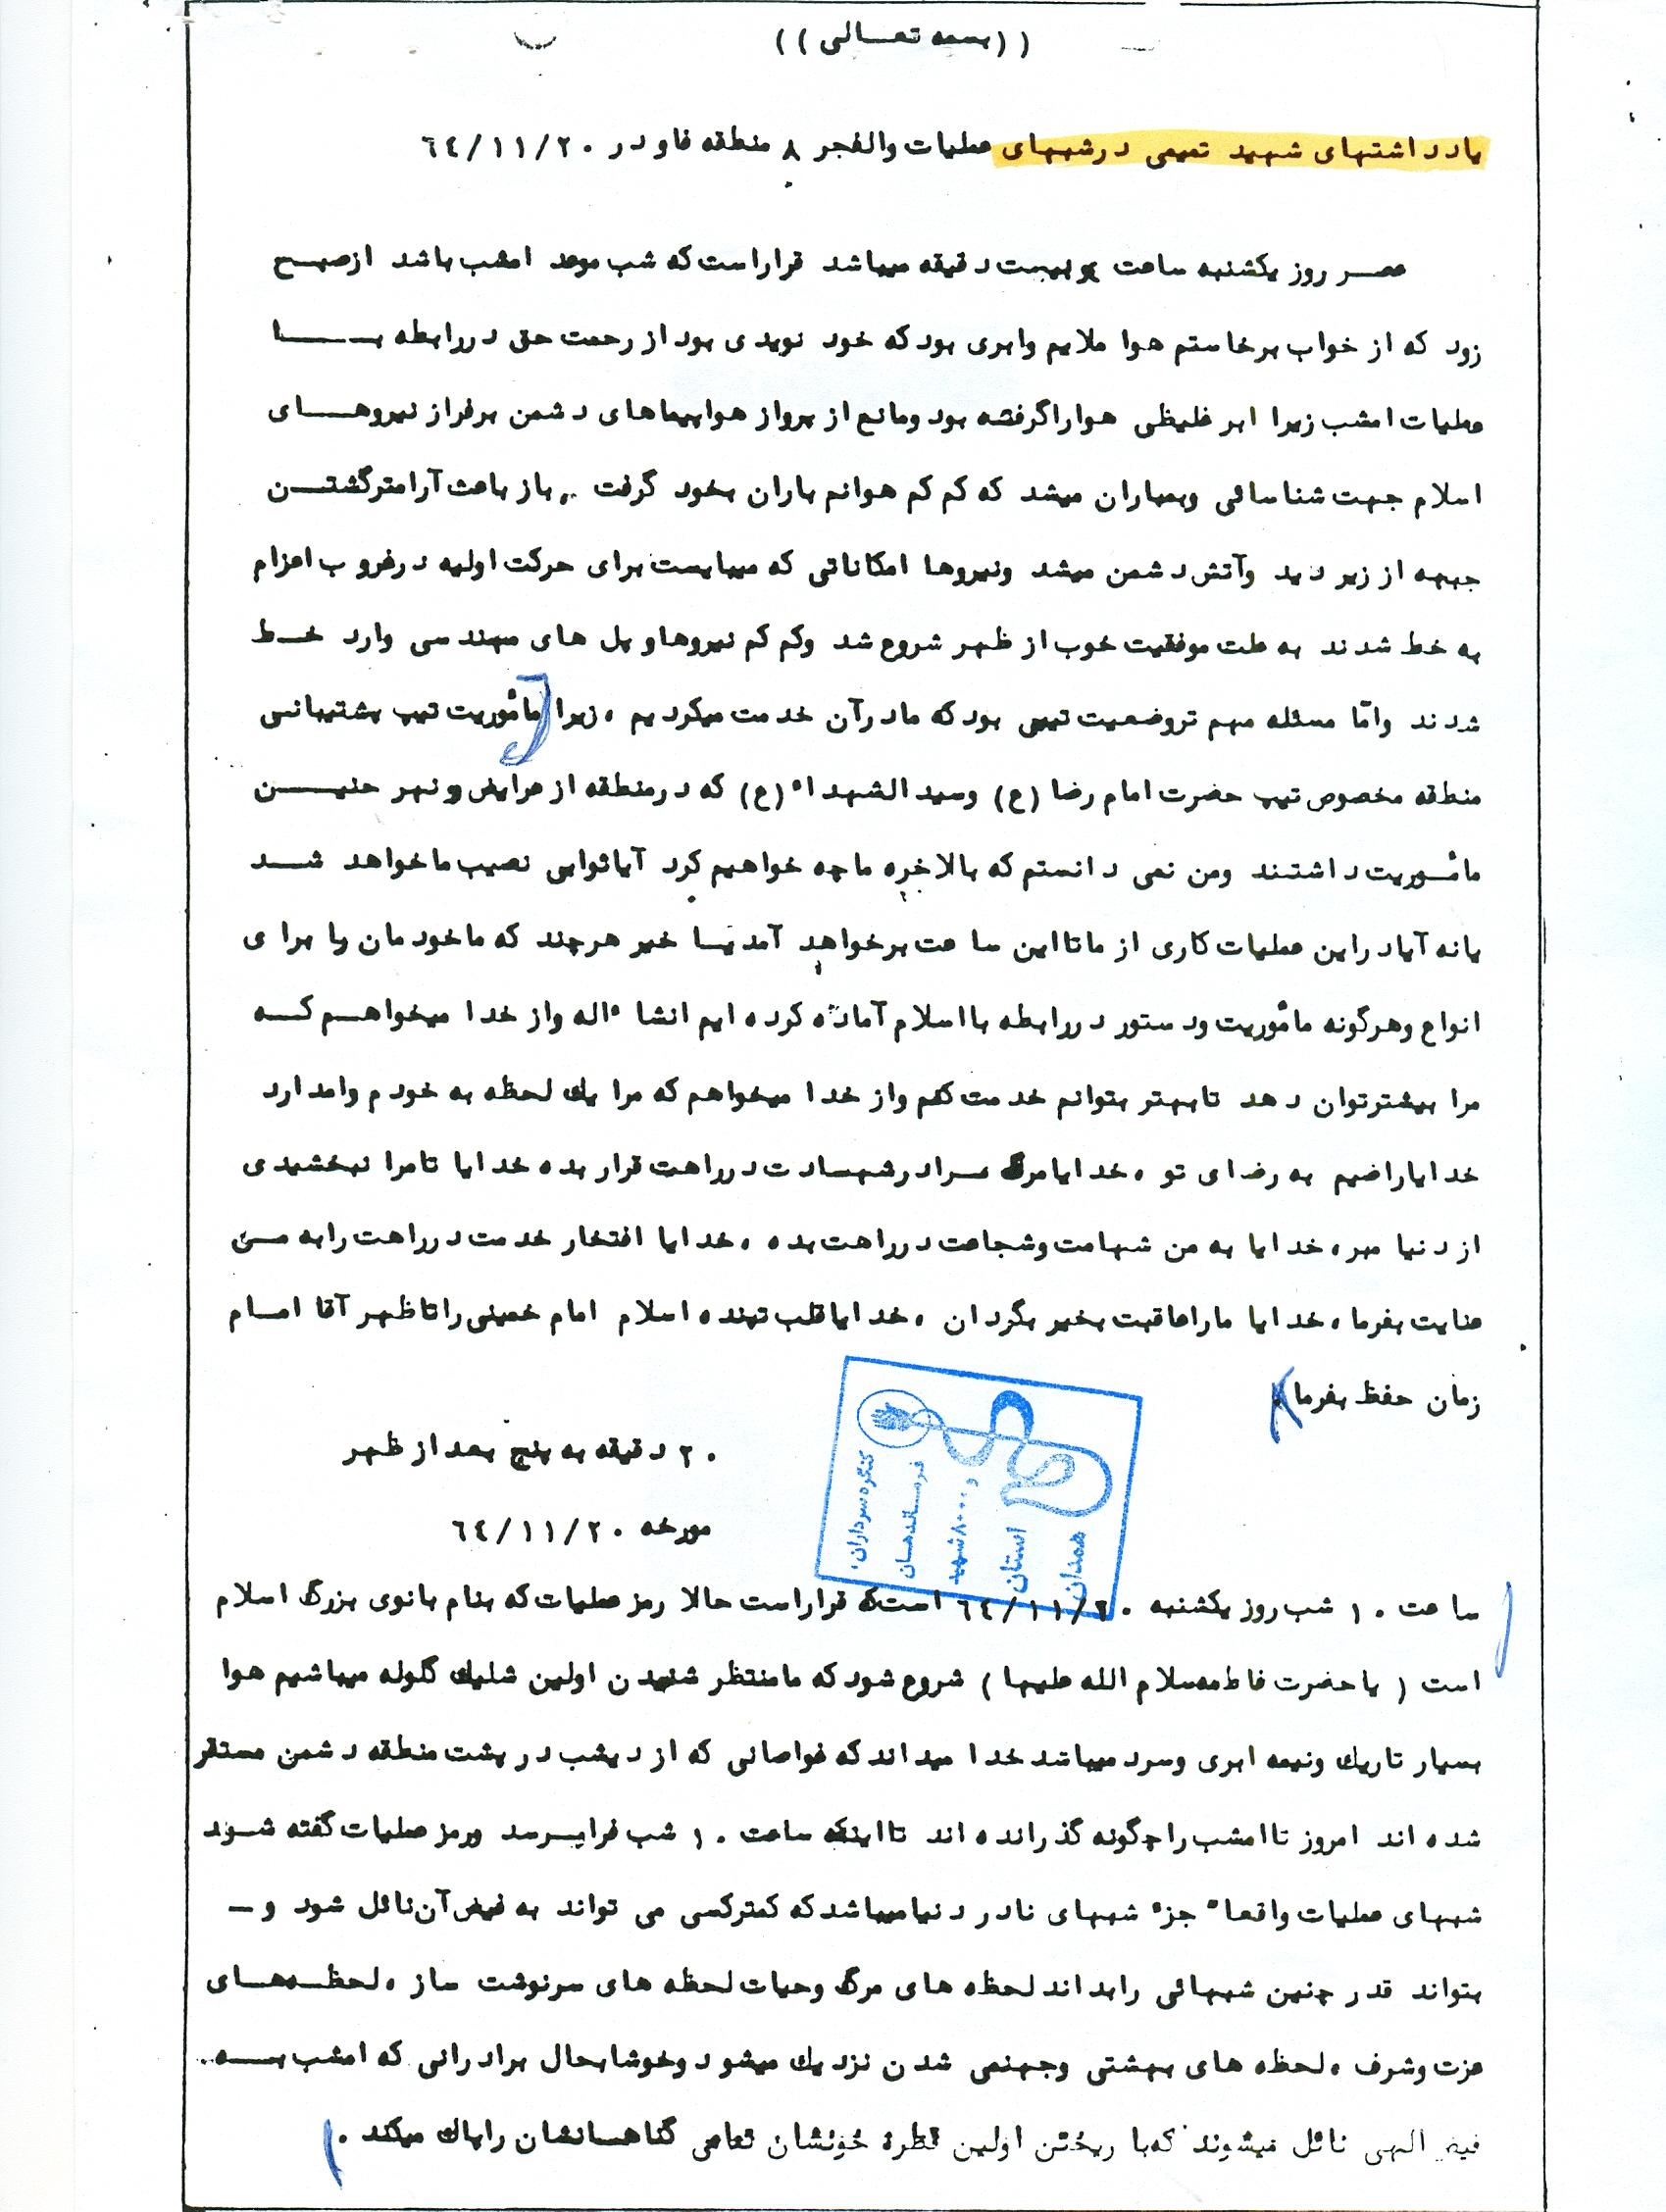 ((بسمه تعالی))
یادداشتهای شهید تمیمی درشبهای عملیات والفجر ۸ منطقه فاو در ۶۴/۱۱/۲۰
عصر روز یکشنبه ساعت بیست دقیقه میباشد قراراست که شب موعد امشب باشد ازصبح
زود که از خواب برخاستم هوا ملایم وابری بود که خود نویدی بود از رحمت حق دررابطه با
عملیات امشب زیرا ابر غلیظی هوارا گرفته بود ومانع از پرواز هواپیماهای دشمن برفراز نیروهای
اسلام جهت شناسائی وبمباران میشد که کم کم هوانم باران بخود گرفت .. باز باعث آرامترگشتن
جبهه از زیر دید وآتش دشمن میشد ونیروها امکاناتی که میبایست برای حرکت اولیه درغروب اعزام
به خط شدند به علت موفقیت خوب از ظهر شروع شد وکم کم نیروها و پل های مهندسی وارد خط
شدند وامّا مسئله مهم تروضعیت تیپی بود که مادرآن خدمت میکردیم ، زیرا مأموریت تیپ پشتیبانی
منطقه مخصوص تیپ حضرت امام رضا (ع) وسید الشهداء (ع) که درمنطقه از عرایض و نهر حنین
مأموریت داشتند ومن نمی دانستم که بالاخره ما چه خواهیم کرد آیا ثوابی نصیب ما خواهد شد
یانه آیا دراین عملیات کاری از ما تا این ساعت برخواهد آمد یا خیر هرچند که ما خودمان را برای
انواع وهرگونه مأموریت ودستور دررابطه با اسلام آماده کرده ایم انشاءاله واز خدا میخواهم که
مرا بیشترتوان دهد تا بهتر بتوانم خدمت کنم واز خدا میخواهم که مرا یك لحظه به خودم وامدارد
خدایا راضیم به رضای تو ، خدایا مرگ مرا در شهادت درراهت قرار بده خدایا تا مرا نبخشیدی
از دنیا مبر ، خدایا به من شهامت وشجاعت درراهت بده ، خدایا افتخار خدمت درراهت را به من
عنایت بفرما ، خدایا ما را عاقبت بخیر بگردان ، خدایا قلب تپنده اسلام امام خمینی را تا ظهر آقا امام
زمان حفظ بفرما
۲۰ دقیقه به پنج بعد از ظهر
مورخه ۶۴/۱۱/۲۰
کنگره سرداران،
فرماندهان
و ۸۰۰۰ شهید
استان
همدان
ساعت ۱۰ شب روز یکشنبه ۶۴/۱۱/۲۰ است که قراراست حالا رمز عملیات که بنام بانوی بزرگ اسلام
است ( یا حضرت فاطمه سلام الله علیها ) شروع شود که ما منتظر شنیدن اولین شلیك گلوله میباشیم هوا
بسیار تاریك ونیمه ابری وسرد میباشد خدا میداند که غواصانی که از دیشب در پشت منطقه دشمن مستقر
شده اند امروز تا امشب را چگونه گذرانده اند تا اینکه ساعت ۱۰ شب فرا برسد ورمز عملیات گفته شود
شبهای عملیات واقعاً جزء شبهای نادر دنیا میباشد که کمترکسی می تواند به فیض آن نائل شود و ــ
بتواند قدر چنین شبهائی را بداند لحظه های مرگ وحیات لحظه های سرنوشت ساز ، لحظه های
عزت وشرف ، لحظه های بهشتی وجهنمی شدن نزدیك میشود وخوشا بحال برادرانی که امشب به ..
فیض الهی نائل میشوند که با ریختن اولین قطره خونشان تمامی گناهانشان را پاك میکند .